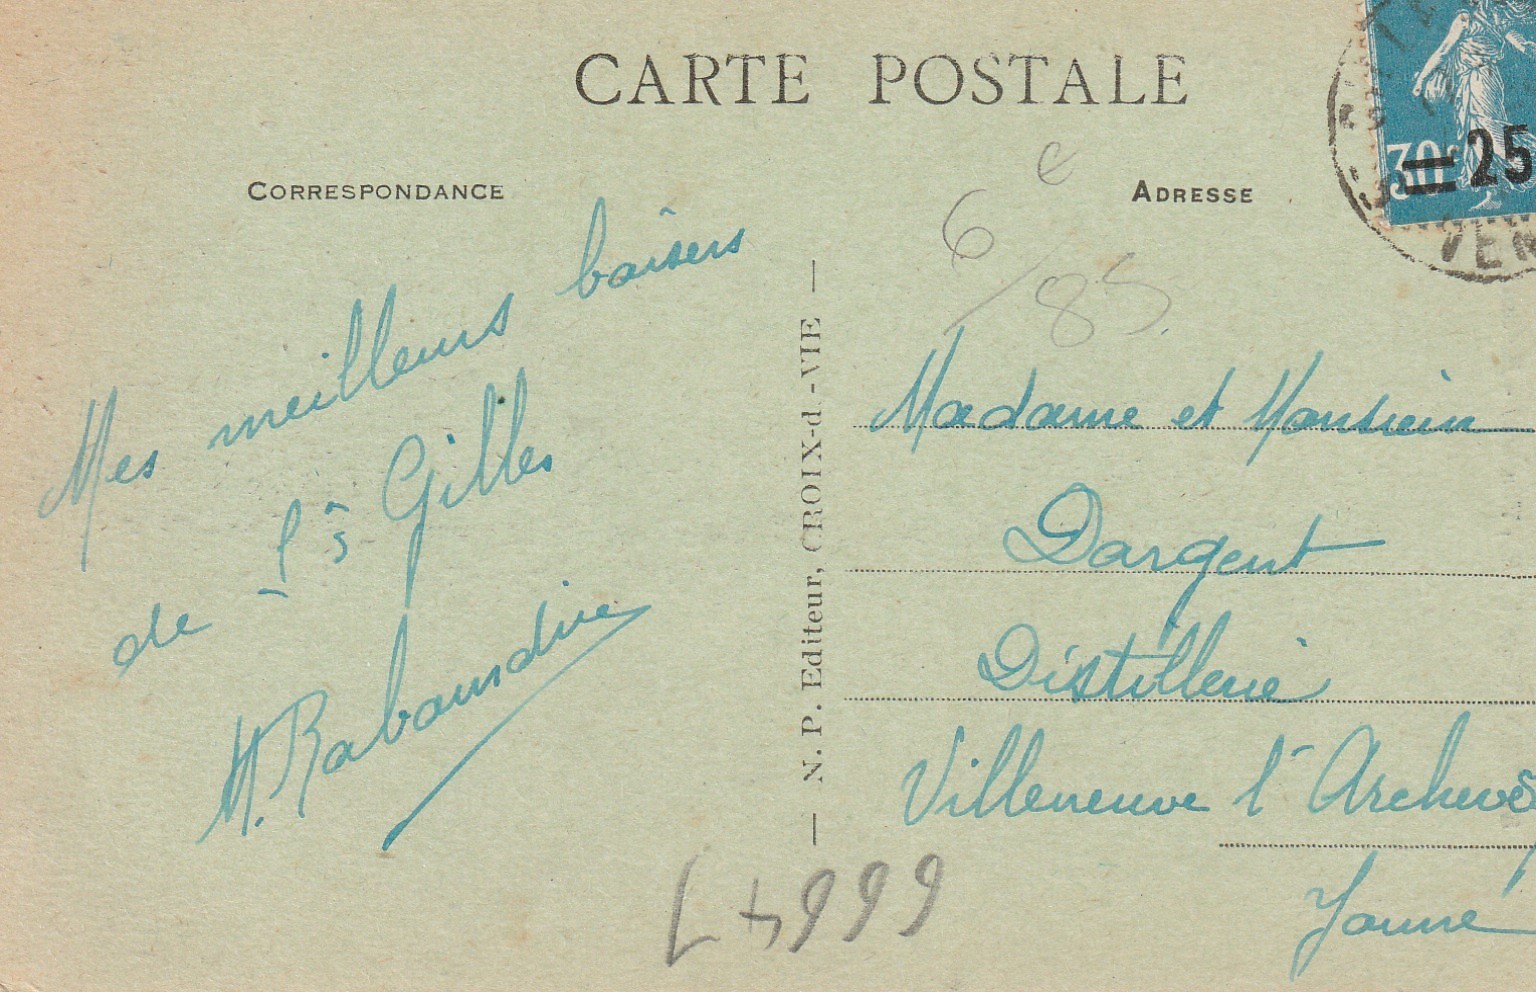 CARTE POSTALE
CORRESPONDANCE
ADRESSE
30c
25
VEN
6 e
/85
Mes meilleurs baisers
de St Gilles
N. P. Editeur, CROIX-d.-VIE
Madame et Monsieur
Dargent
Distillerie
Villeneuve l'Archevê
Yonne